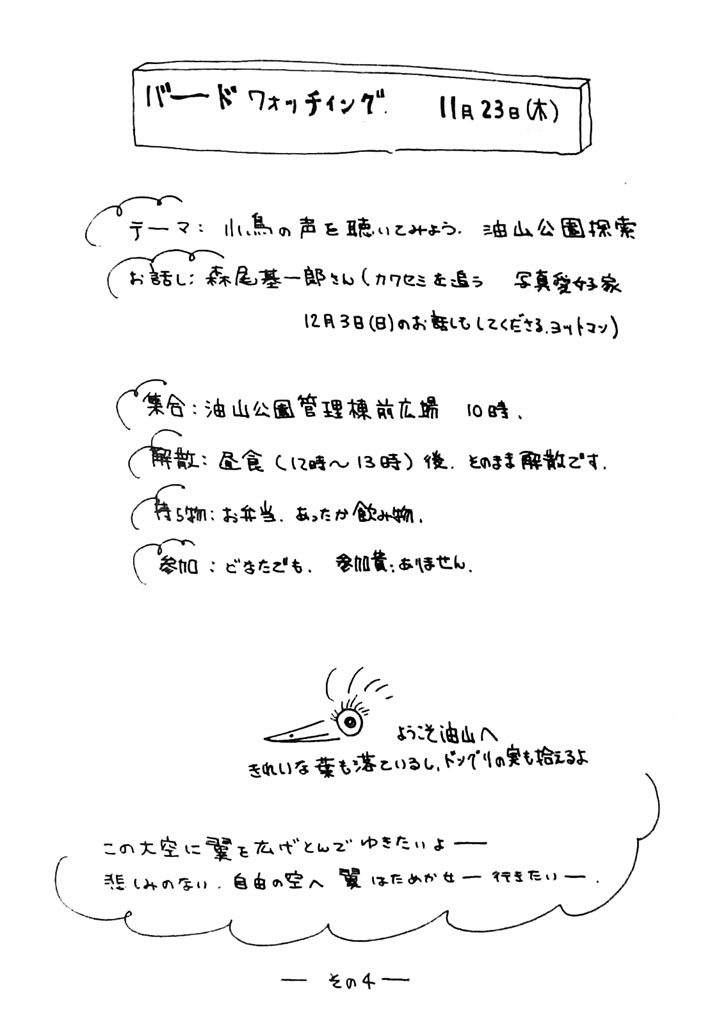 バード ウォッチィング. 11月23日(木)
テーマ: 小鳥の声を聴いてみよう. 油山公園探索
お話し: 森尾基一郎さん(カワセミを追う 写真愛好家
12月3日(日)のお話しもしてくださる.ヨットマン)
集合: 油山公園管理棟前広場 10時.
解散: 昼食(12時〜13時)後. そのまま解散です.
持ち物: お弁当. あったか飲み物.
参加: どなたでも. 参加費: ありません.
ようこそ油山へ
きれいな葉も落ているし, ドングリの実も拾えるよ
この大空に翼を広げとんでゆきたいよー
悲しみのない. 自由の空へ 翼はためかせー 行きたいー.
— その4 —